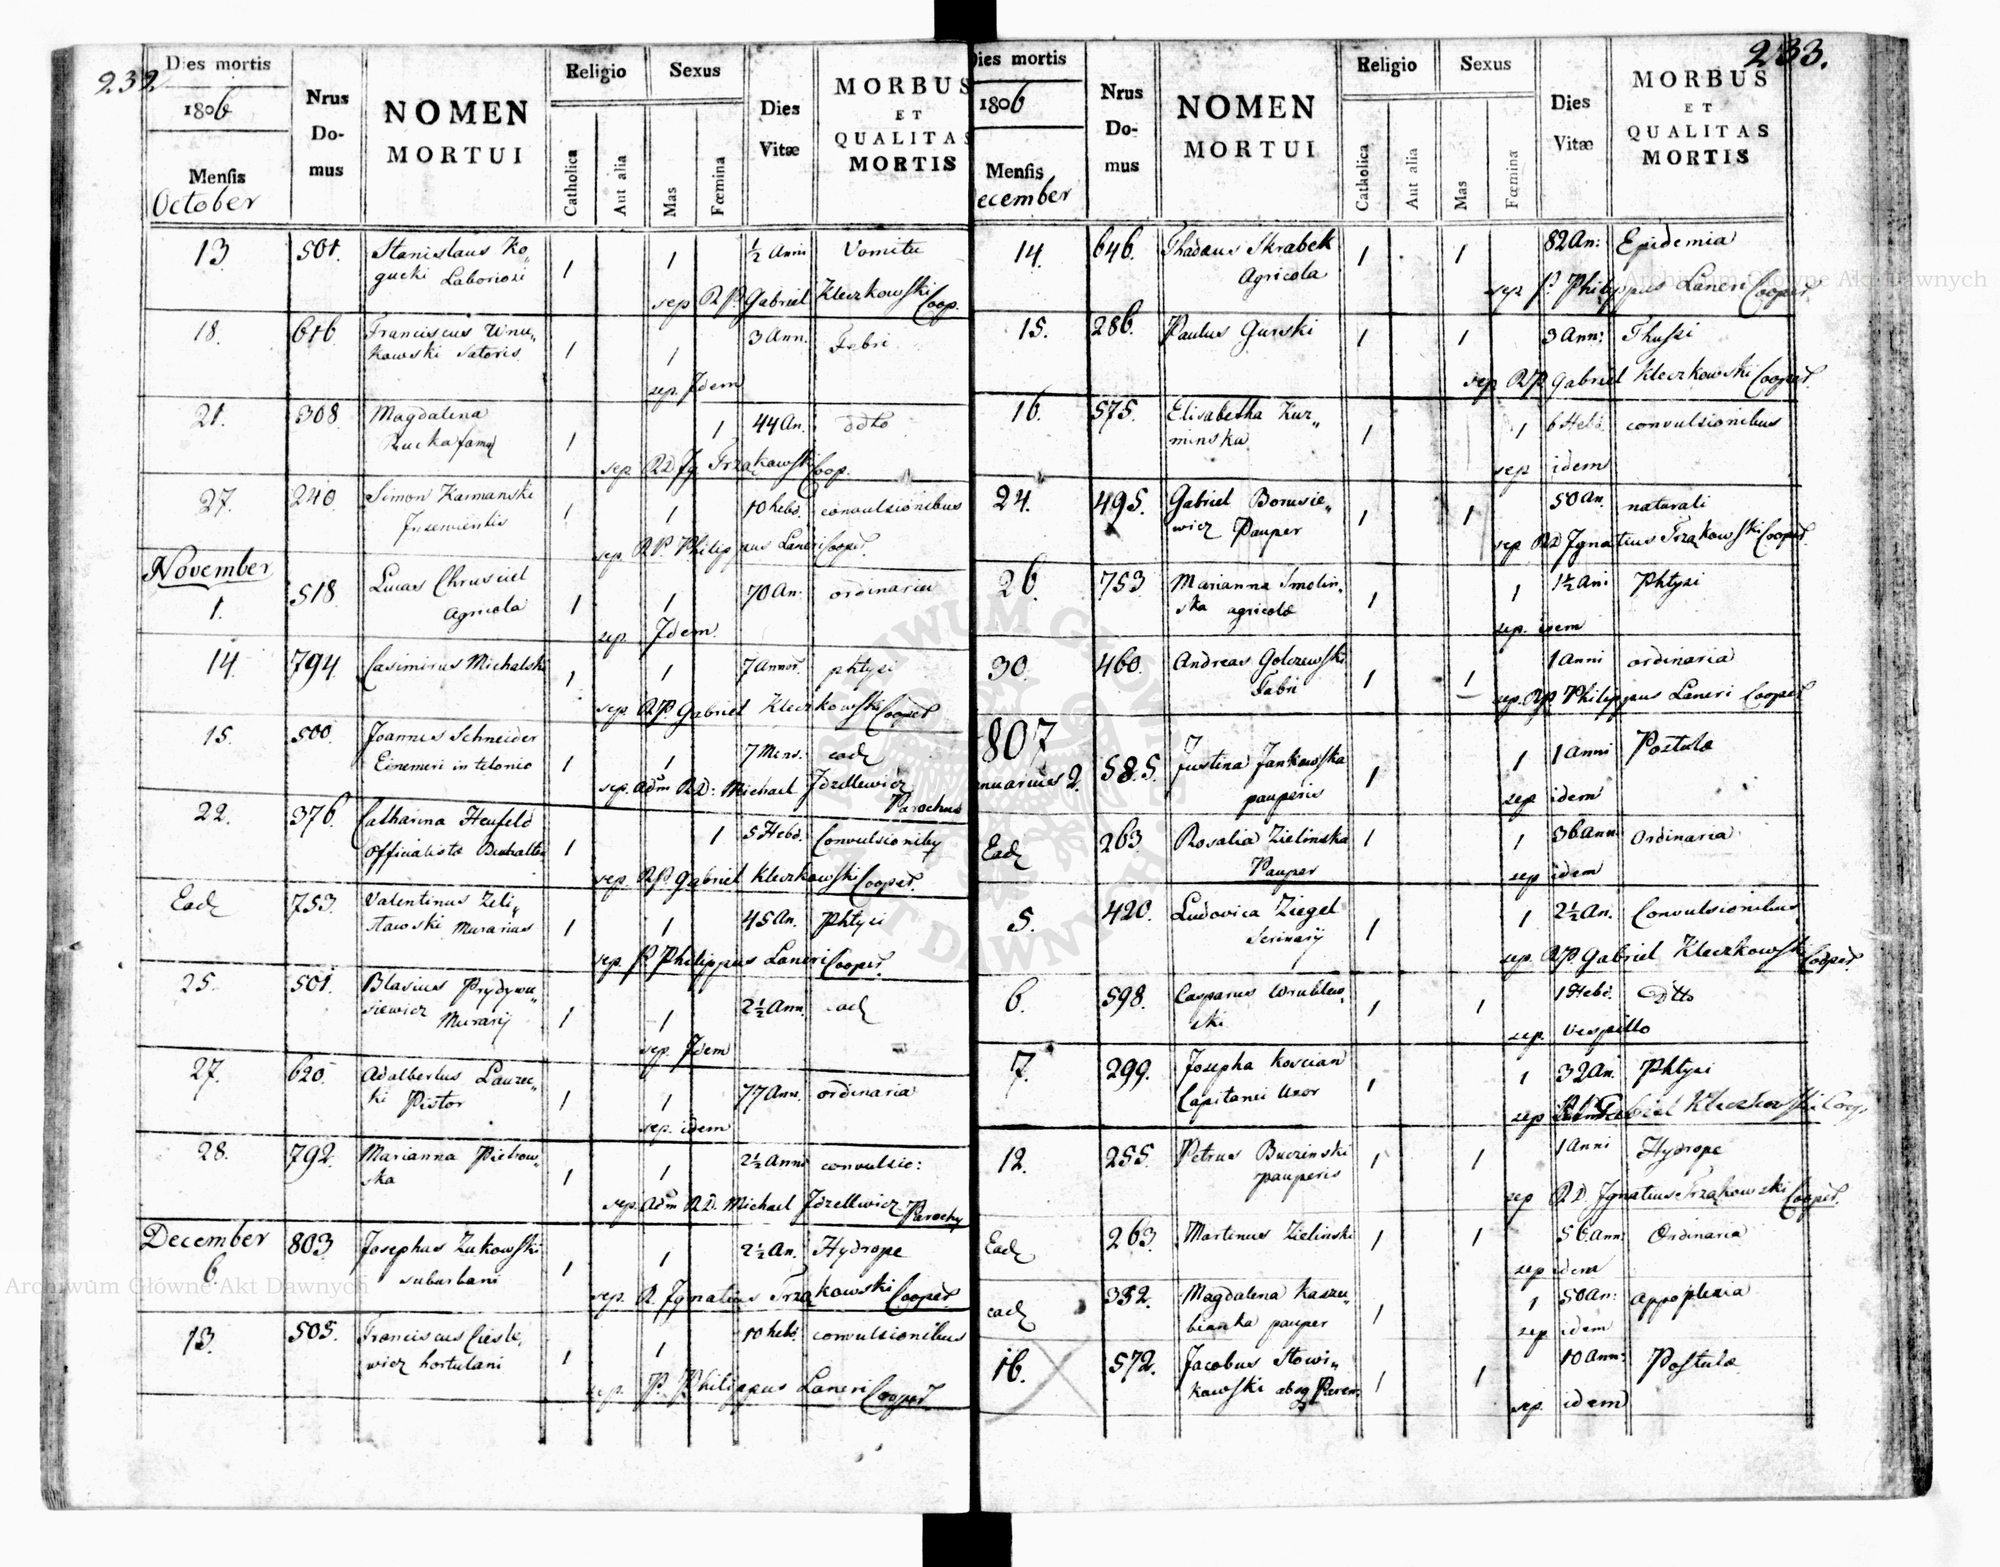 232
Dies mortis
1806
Mensis
October
Nrus
Do-
mus
NOMEN
MORTUI
Religio
Catholica
Aut alia
Sexus
Mas
Fœmina
Dies
Vitæ
MORBUS
ET
QUALITAS
MORTIS
13 501. Stanislaus Ko„ 1 1 ½ Anni Vomitu
gucki Laboriosi
sep R P Gabriel Kleczkowski Coop.
18. 616 Franciscus Wnu„ 1 1 3 Ann. Febri
kowski Satoris
sep. Idem
21. 308 Magdalena 1 1 44 An. ddto
Rucka fama
sep. RD Ig Trzakowski Coop.
27. 240 Simon Kaimanski 1 1 10 hebd. convulsionibus
Inservientis
sep. R P. Philippus Laneri Cooper.
November
1. 518. Lucas Chrusciel 1 1 70 An. ordinaria
Agricola
sep. Idem.
14 794 Casimirus Michalski 1 1 7 Annor phtysi
sep. R P. Gabriel Kleczkowski Cooper
15. 500. Joannes Schneider 1 1 7 Mens. ead
in telonio
sep. Adm R D: Michael Idzellewicz
Parochus
22. 376 Catharina Heufeld 1 1 5 Hebd. Convulsionibq
Officialistæ
sep. R P Gabriel Kleczkowski Cooper.
Ead 753. Valentinus Zeli„ 1 1 45 An. Phtysi
stawski Murarius
sep. P. Philippus Laneri Cooper.
25. 501. Blasius Prydywu„ 1 1 2½ Ann. ead
siewicz Murarij
sep. Idem
27. 620. Adalbertus Lauzec„ 1 1 77 Ann. ordinaria
ki Pistor
sep. idem
28. 792. Marianna Pietrow„ 1 1 2½ Anni convulsio:
ska
sep. Adm R D. Michael Idzellewicz Parochq
December
6 803. Josephus Zukowski 1 1 2½ An. Hydrope
suburbani
sep. R Ignatius Trzakowski Cooper
13. 505. Franciscus Ciesle„ 1 1 10 hebd. convulsionibus
wicz hortulani
sep. P. Philippus Laneri Cooper
233.
Dies mortis
1806
Mensis
ecember
Nrus
Do-
mus
NOMEN
MORTUI
Religio
Catholica
Aut alia
Sexus
Mas
Fœmina
Dies
Vitæ
MORBUS
ET
QUALITAS
MORTIS
14. 646. Thadæus Skrabek 1 1 82 An: Epidemia
Agricola
sep P. Philippus Laneri Cooper
15. 286. Paulus Gurski 1 1 3 Ann: Thussi
sep R P Gabriel Kleczkowski Cooper.
16. 575. Elisabetha Kuz„ 1 1 6 Hebd. convulsionibus
minska
sep idem
24. 495. Gabriel Borusie„ 1 1 50 An. naturali
wicz Pauper
sep RD Ignatius Trzakowski Cooper.
26. 753 Marianna Smolin„ 1 1 1½ Ani Phtysi
ska agricolæ
sep. idem
30. 460. Andreas Golczewski 1 1 1 Anni ordinaria
Fabri
sep. RP Philippus Laneri Cooper
807
nuarius 2. 585. Justina Jankowska 1 1 1 Anni Postulæ
pauperis
sep idem
Ead 263. Rosalia Zielinska 1 1 36 Ann. Ordinaria
Pauper
sep idem
5. 420. Ludovica Ziegel 1 1 2½ An. Convulsionibus
Serinarij
sep. R P. Gabriel Kleczkowski Cooper.
6. 598. Casparus Wrublew„ 1 1 1 Hebd. Ditto
ski
sep. Vespillo
7. 299. Josepha Koscian 1 1 32 An. Phtysi
Capitanei Uxor
sep Gabriel Kleczkowski Coop.
12. 255. Petrus Buczinski 1 1 1 Anni Hydrope
pauperis
sep R D. Ignatius Trzakowski Cooper.
Ead 263. Martinus Zielinski 1 1 56 Ann: Ordinaria
sep idem
ead 332. Magdalena Kaszu„ 1 1 50 An: Appoplexia
bianka pauper
sep idem
16. 572. Jacobus Stowi„ 1 1 10 Ann: Postulæ
kowski absq Paren„
sep. idem
Archiwum Główne Akt Dawnych
Archiwum Główne Akt Dawnych
ARCHIWUM GŁÓWNE AKT DAWNYCH